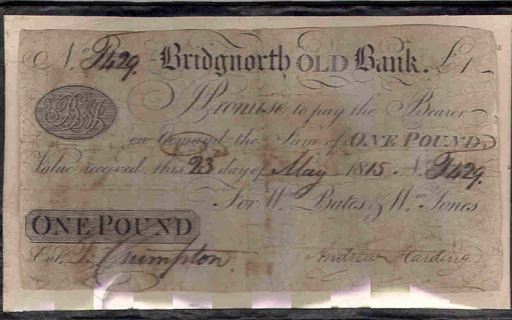 No. P429. Bridgnorth OLD Bank. £1
I Promise to pay the Bearer
on Demand the Sum of ONE POUND,
Value received this 23 day of May 1815 No. P429.
For Wm. Bates & Wm. Jones
ONE POUND
Entd. Crumpton.
Andrew Harding.